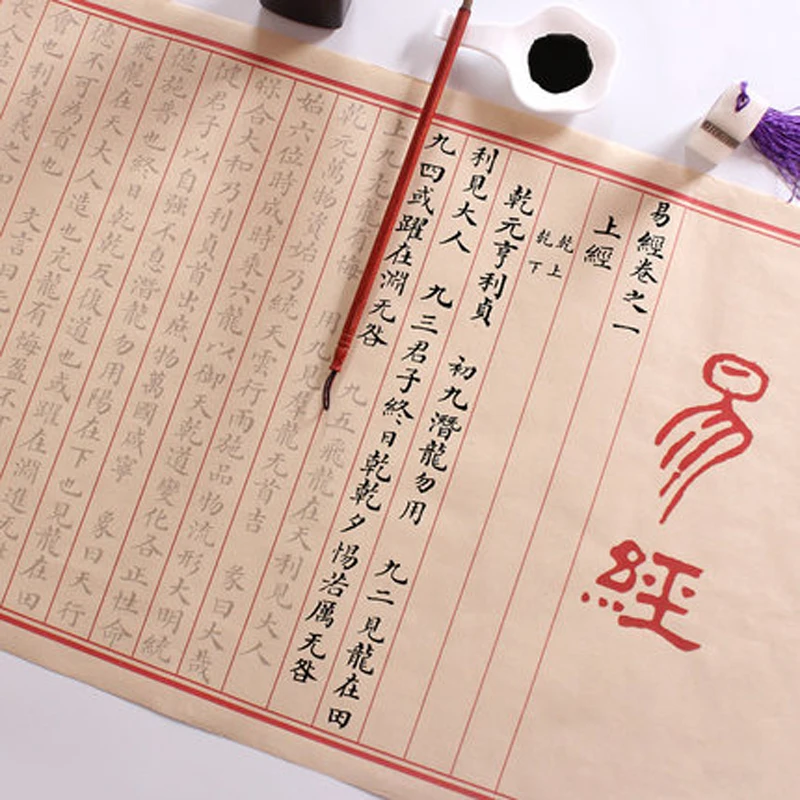 易經
易經卷之一
上經
乾上
乾下
乾元亨利貞 初九潛龍勿用 九二見龍在田
利見大人 九三君子終日乾乾夕惕若厲无咎
九四或躍在淵无咎 九五飛龍在天利見大人
上九亢龍有悔 用九見羣龍无首吉 彖曰大哉
乾元萬物資始乃統天雲行雨施品物流形大明統
始六位時成時乘六龍以御天乾道變化各正性命
綜合大和乃利貞首出庶物萬國咸寧 象曰天行
健君子以自强不息潛龍勿用陽在下也見龍在田
德施普也終日乾乾反復道也或躍在淵進无咎
飛龍在天大人造也亢龍有悔盈不可
德不可為首也 文言曰元
會也利者義之和
長人